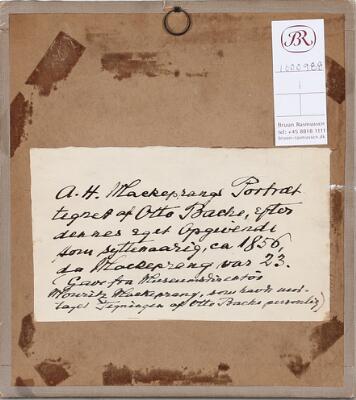 BR
1000988
1
Bruun Rasmussen
tel: +45 8818 1111
bruun-rasmussen.dk
A. H. Mackeprangs Portræt
tegnet af Otto Bache, efter
dennes eget Opgivende
som syttenaarig, ca 1856,
da Mackeprang var 23.
(Gave fra Museumsdirektør
Mouritz Mackeprang, som havde mod-
taget Tegningen af Otto Bache personlig)